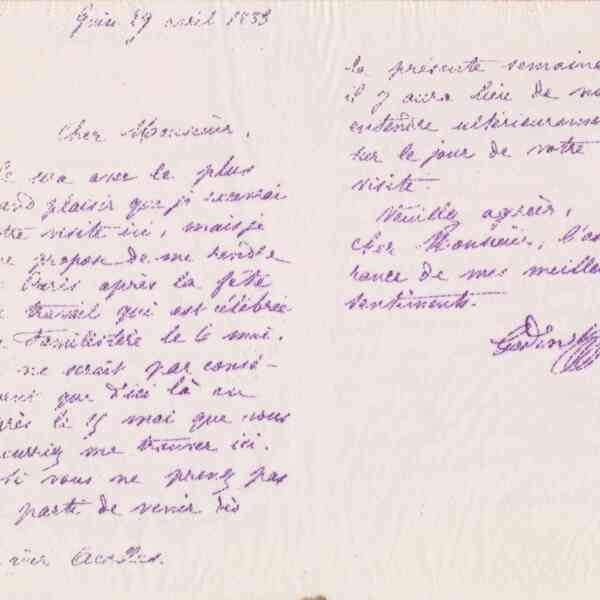 Guise 29 avril 1883
Cher Monsieur,
ce sera avec le plus
and plaisir que je recevrai
tre visite ici, mais je
e propose de me rendre
Paris après la fête
travail qui est célébrée
Familistère le 6 mai.
ne serait par consé-
ent que d'ici là ou
près le 15 mai que vous
urriez me trouver ici.
Si vous ne prenez pas
parti de venir dès
la présente semaine
il y aura lieu de no
entendre ultérieurement
sur le jour de votre
visite.
Veuillez agréer,
cher Monsieur, l'ass
rance de mes meilleu
sentiments.
Godin